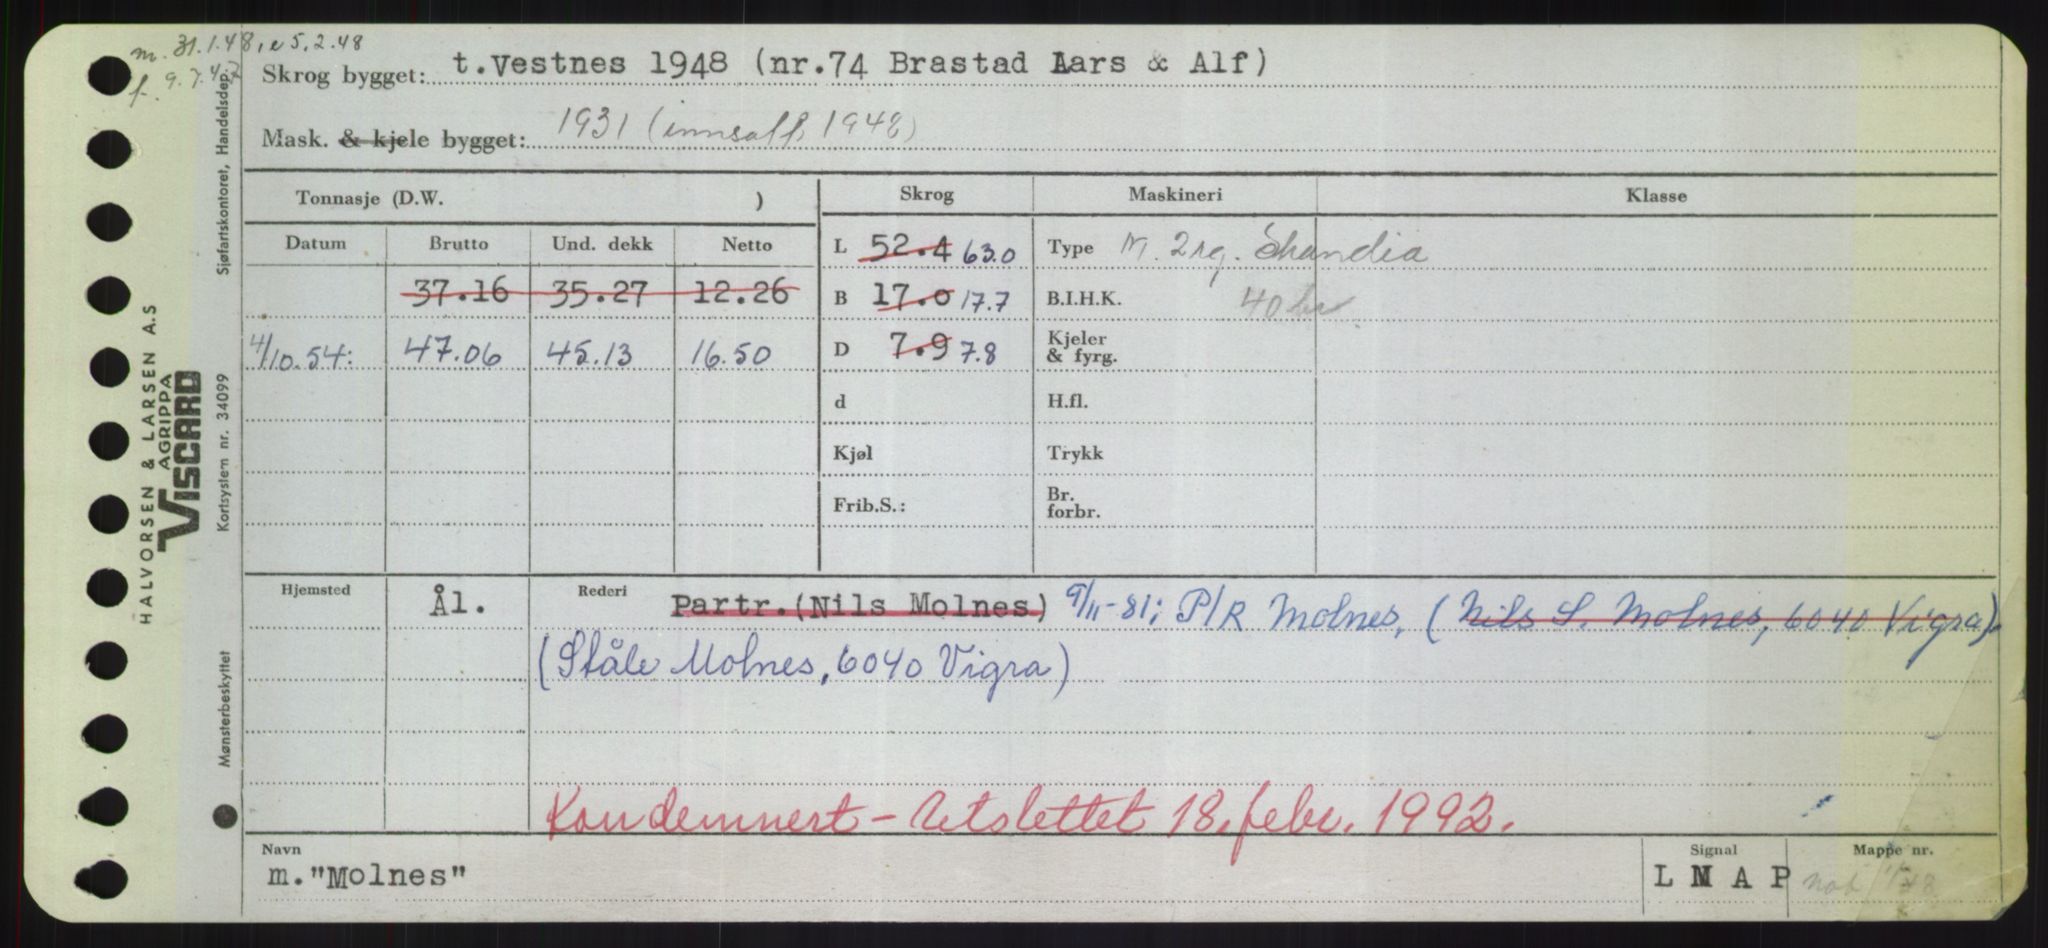 m. 31.1.48, e 5.2.48
f. 9.7.47
Skrog bygget: t.Vestnes 1948 (nr.74 Brastad Lars & Alf)
Mask. & kjele bygget: 1931 (innsatt 1948)
Tonnasje (D.W. )
Skrog Maskineri Klasse
Datum Brutto Und. dekk Netto
L 52.4 63.0 Type M. 2 syl. Skandia
37.16 35.27 12.26
B 17.0 17.7 B.I.H.K. 40 hr
4/10.54: 47.06 45.13 16.50
D 7.9 7.8 Kjeler & fyrg.
d H.fl.
Kjøl Trykk
Frib.S.: Br. forbr.
Hjemsted Ål. Rederi Partr.(Nils Molnes) 9/11-81; P/R Molnes, (Nils S. Molnes, 6040 Vigra)
(Ståle Molnes, 6040 Vigra)
Kondemnert - Utslettet 18. febr. 1992.
Navn Signal Mappe nr.
m."Molnes" L M A P
HALVORSEN & LARSEN A.S
AGRIPPA
VISCARD
Sjøfartskontoret, Handelsdep.
Kortsystem nr. 34099
Mønsterbeskyttet